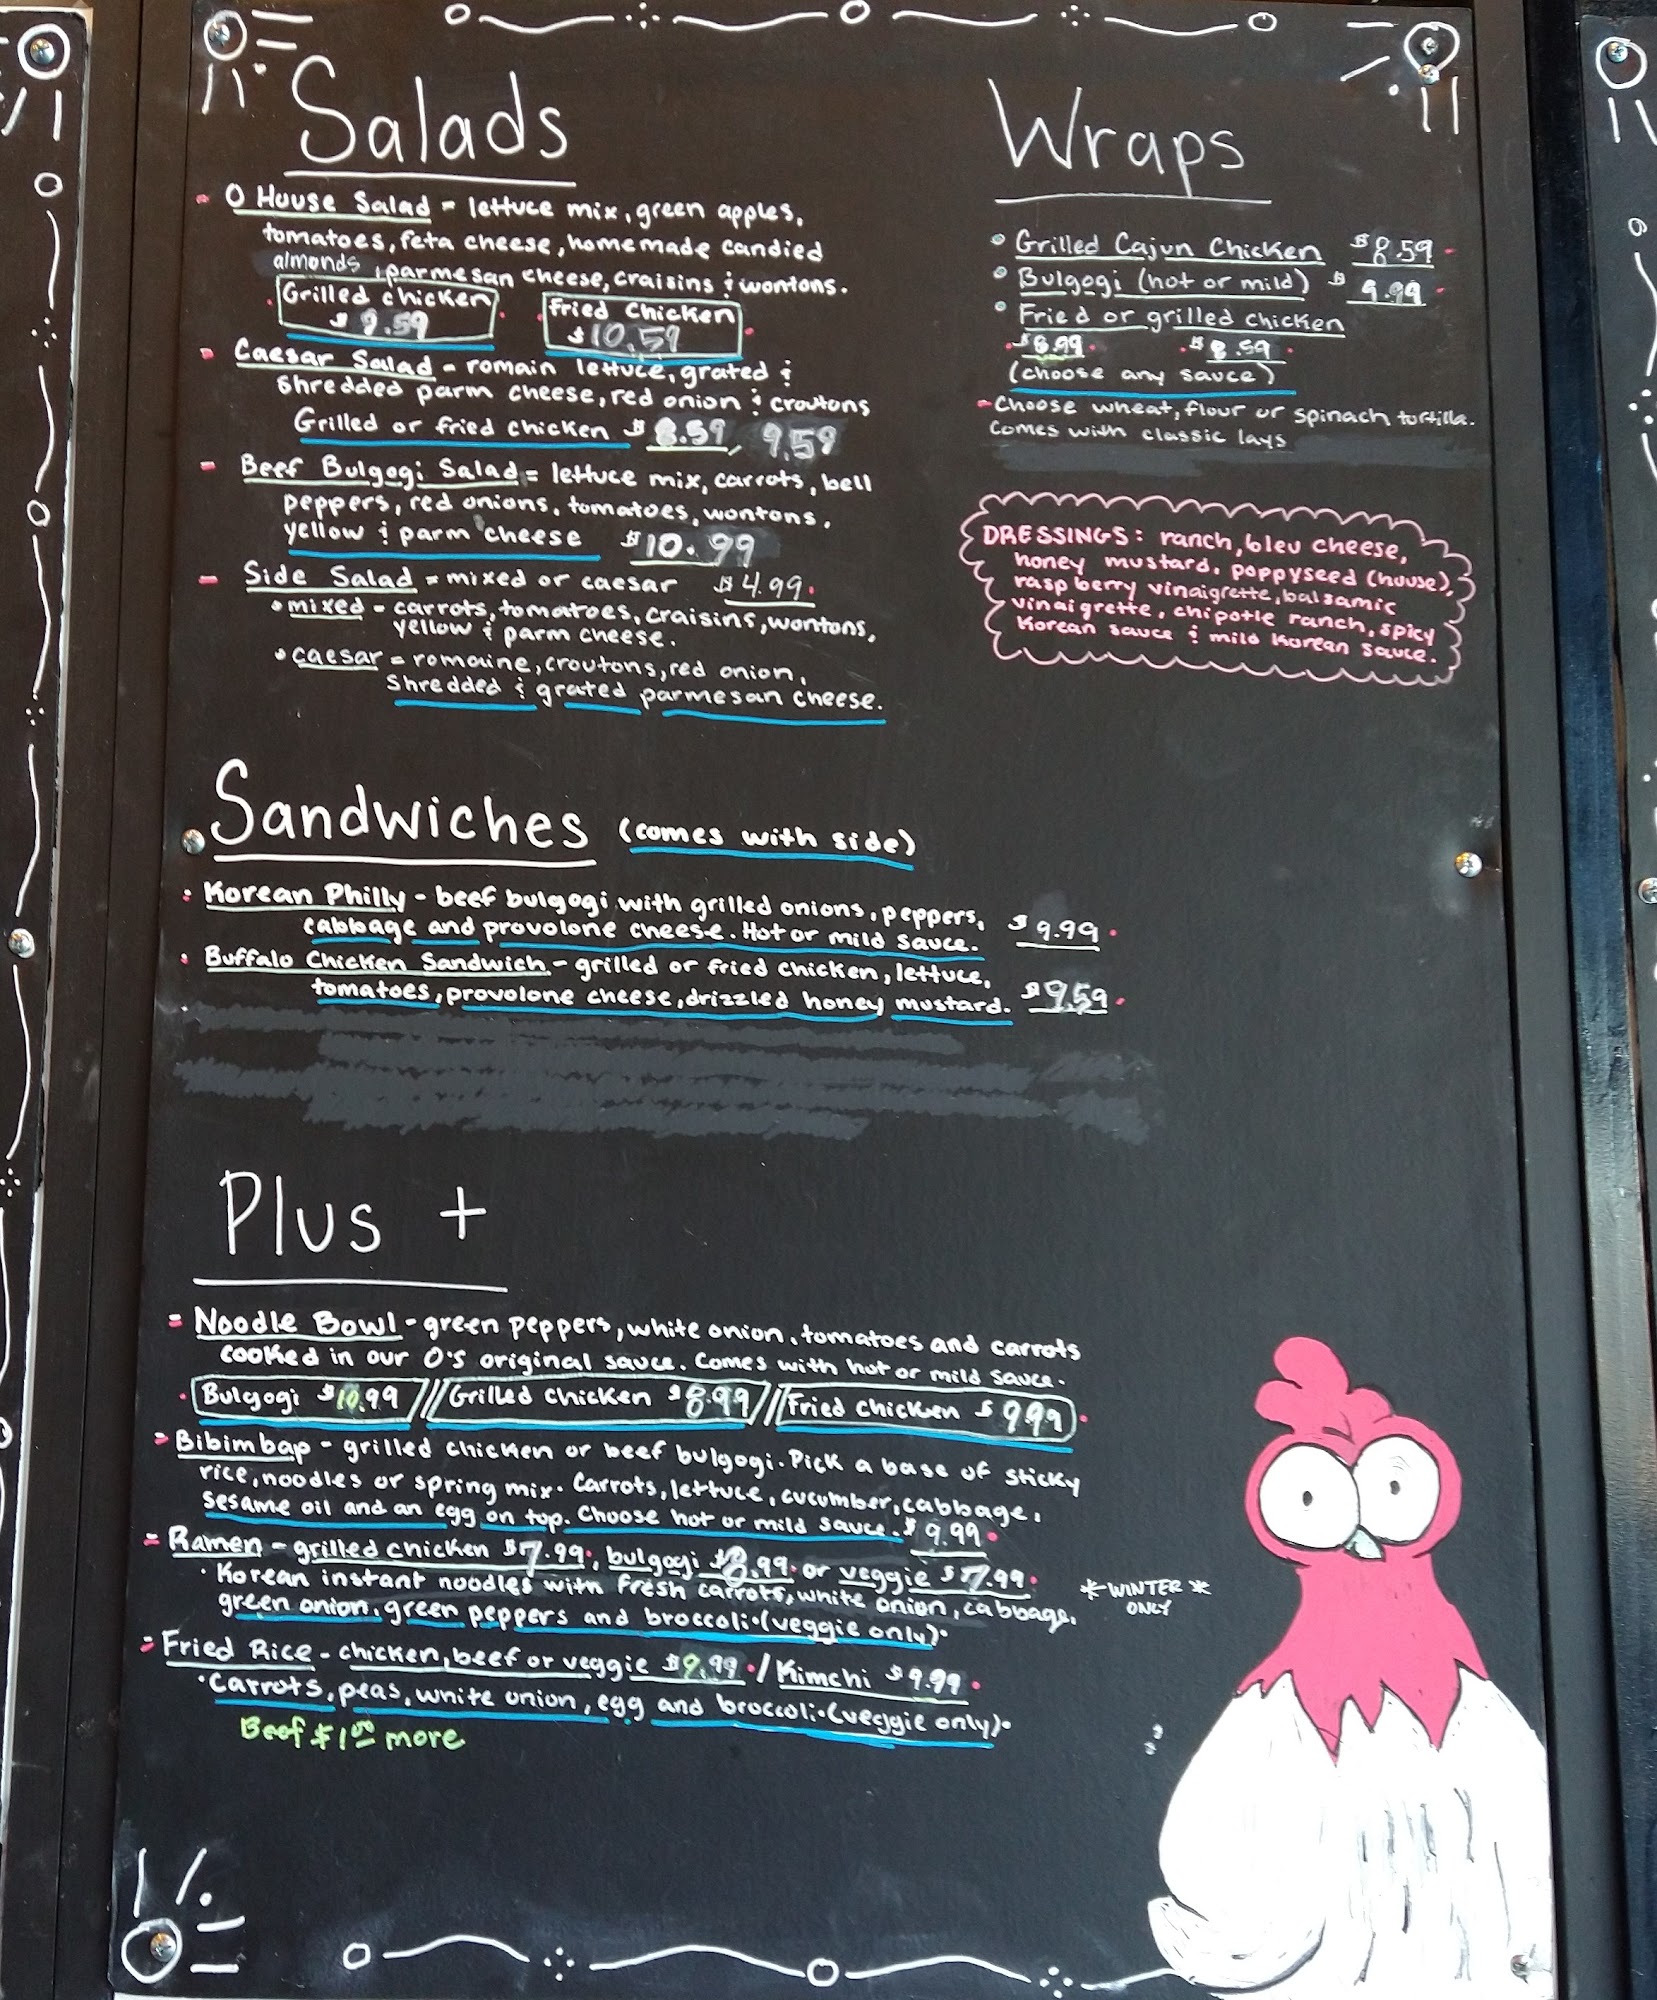 Salads
- O House Salad - lettuce mix, green apples,
tomatoes, feta cheese, homemade candied
almonds, parmesan cheese, craisins & wontons.
Grilled chicken Fried Chicken
$ 9.59 $10.59
- Caesar Salad - romain lettuce, grated &
shredded parm cheese, red onion & croutons
Grilled or fried chicken $ 8.59, 9.59
- Beef Bulgogi Salad = lettuce mix, carrots, bell
peppers, red onions, tomatoes, wontons,
yellow & parm cheese $10.99
- Side Salad = mixed or caesar $4.99
• mixed - carrots, tomatoes, craisins, wontons,
yellow & parm cheese.
• caesar = romaine, croutons, red onion,
shredded & grated parmesan cheese.
Wraps
• Grilled Cajun Chicken $8.59
• Bulgogi (hot or mild) $ 9.99
• Fried or grilled chicken
$8.99 $8.59
(choose any sauce)
- Choose wheat, flour or spinach tortilla.
Comes with classic lays
DRESSINGS: ranch, bleu cheese,
honey mustard, poppyseed (house),
raspberry vinaigrette, balsamic
vinaigrette, chipotle ranch, spicy
Korean sauce & mild Korean sauce.
Sandwiches (comes with side)
: Korean Philly - beef bulgogi with grilled onions, peppers, $9.99
cabbage and provolone cheese. Hot or mild sauce.
: Buffalo Chicken Sandwich - grilled or fried chicken, lettuce,
tomatoes, provolone cheese, drizzled honey mustard. $9.59
Plus +
= Noodle Bowl - green peppers, white onion, tomatoes and carrots
cooked in our O's original sauce. Comes with hot or mild sauce.
Bulgogi $10.99 // Grilled chicken $8.99 // Fried chicken $9.99
- Bibimbap - grilled chicken or beef bulgogi. Pick a base of sticky
rice, noodles or spring mix. Carrots, lettuce, cucumber, cabbage,
sesame oil and an egg on top. Choose hot or mild sauce. $9.99
= Ramen - grilled chicken $7.99, bulgogi $8.99 or veggie $7.99
• Korean instant noodles with fresh carrots, white onion, cabbage,
green onion, green peppers and broccoli. (veggie only).
* WINTER *
ONLY
= Fried Rice - chicken, beef or veggie $9.99 / Kimchi $9.99
• Carrots, peas, white onion, egg and broccoli. (veggie only).
Beef $1.00 more